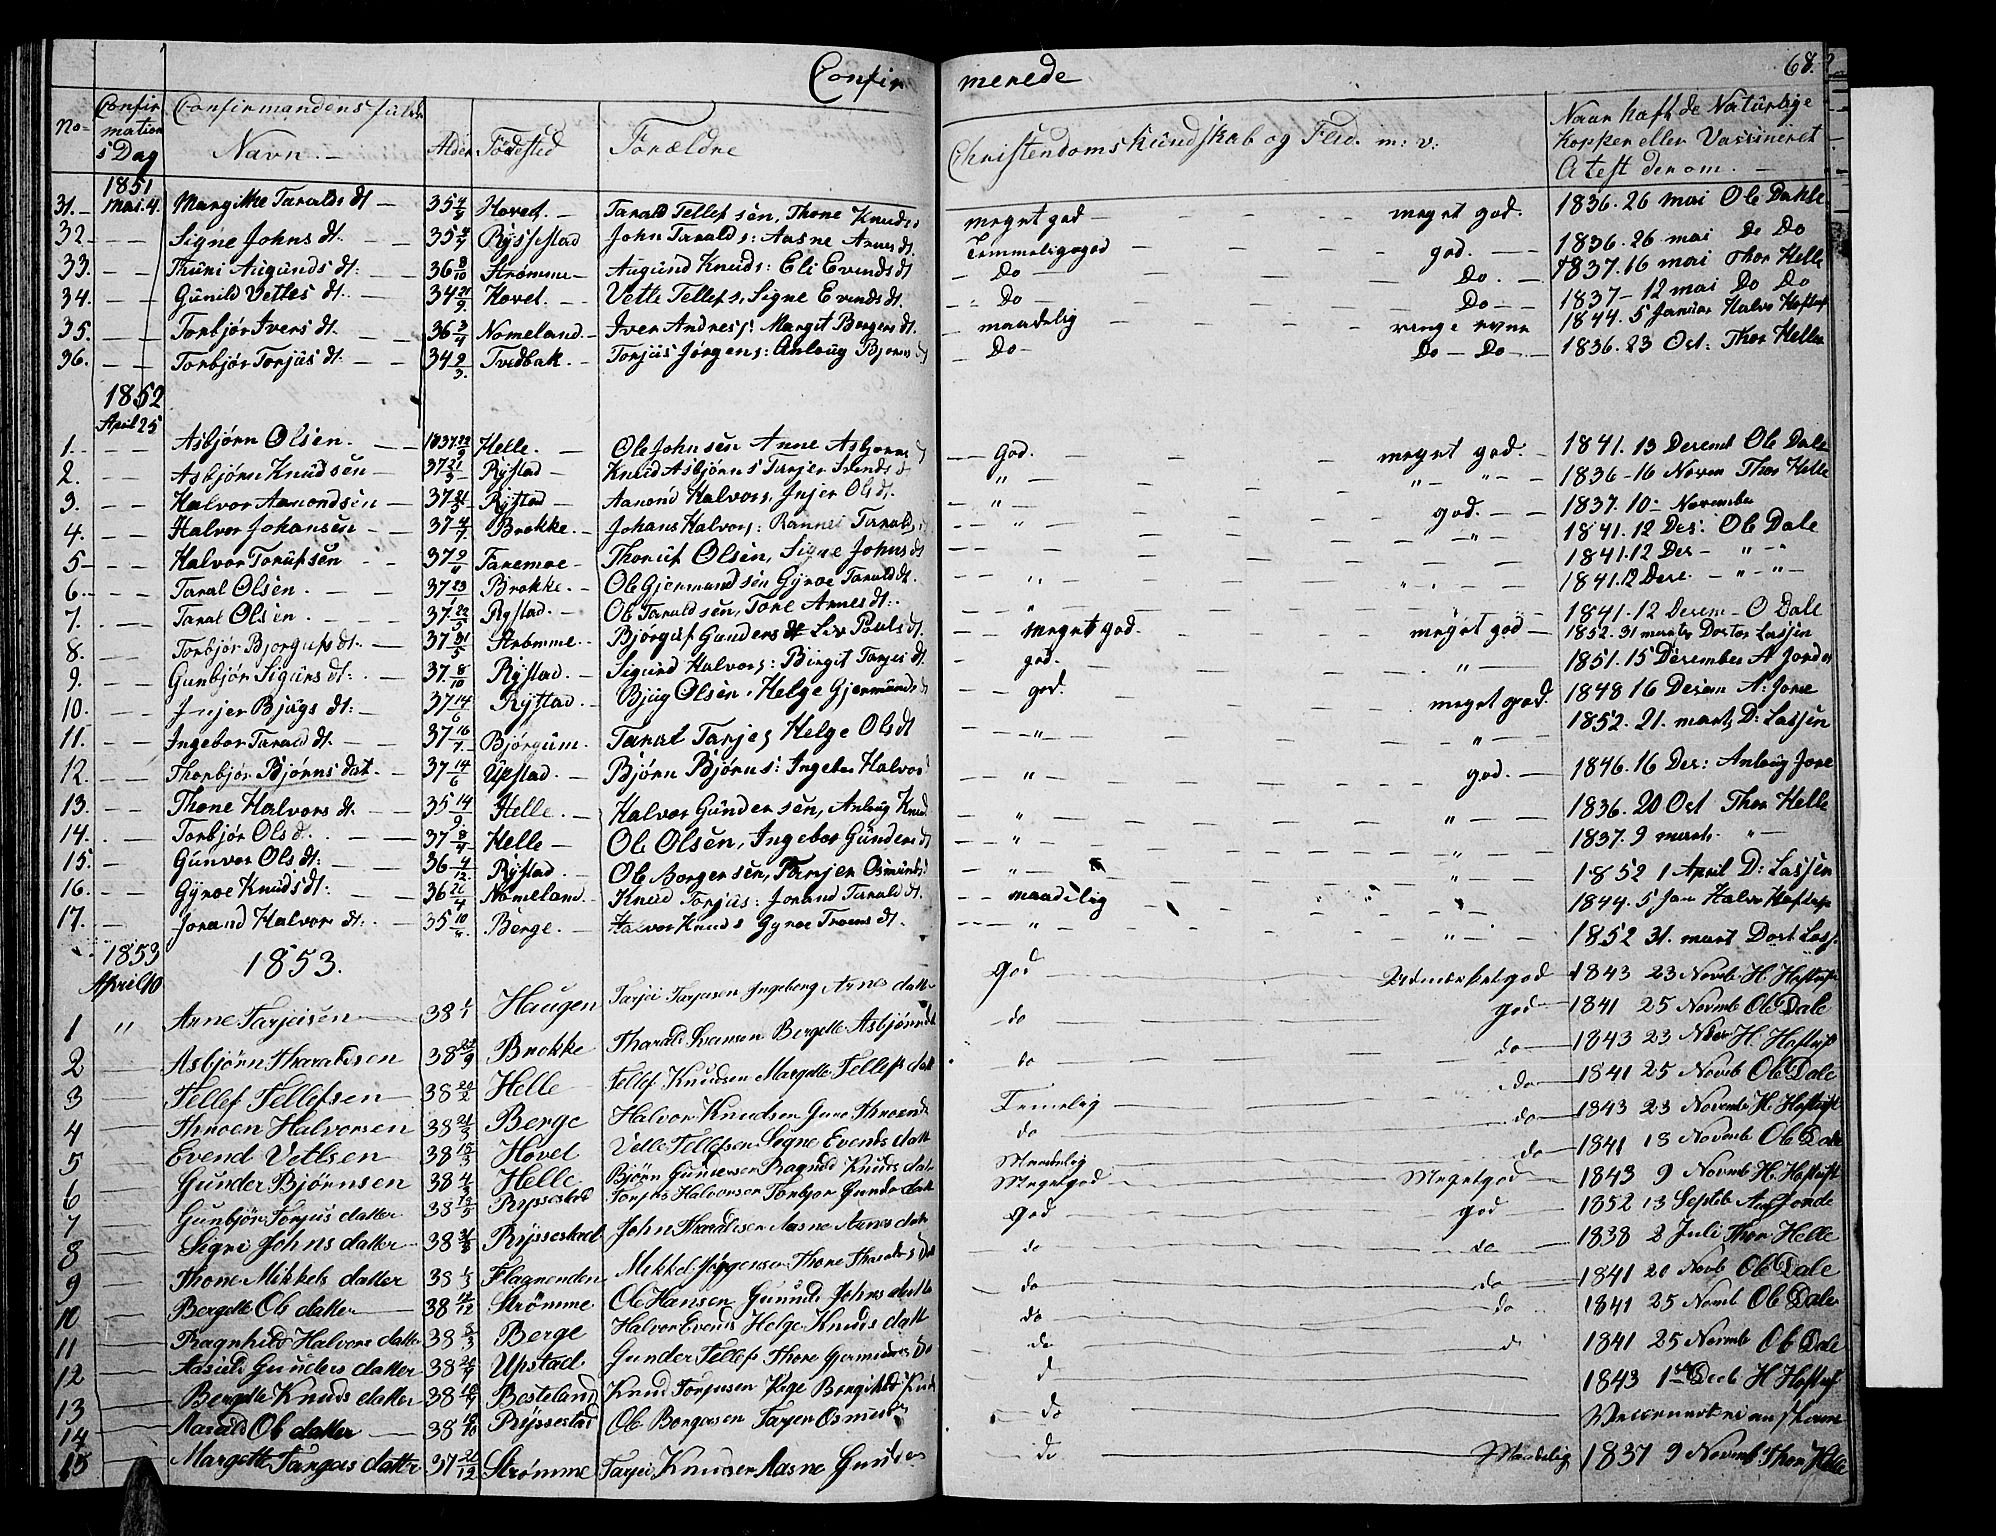 Confirmerede 68.
No Confirmations Dag Confirmandens fulde Navn. Alder Fødested Forældre Christendoms Kundskab og Flid. m: v: Naar haft de Naturlige Kopper eller Vassineret Atest derom.
1851
31. Mai. 4. Margithe Taralds dt 35 Hovet. Tarald Tellefsen, Thone Knuds meget god meget god. 1836. 26 mai Ole Dahle
32 Signe Johns dt. 35 Ryssestad John Taralds: Aasne Arnes dt. Temmelig god god. 1836. 26 mai Do Do
33. Thuri Augunds dt: 36 8/10 Strømme Augund Knuds: Eli Evends dt Do Do. 1837. 16 mai Thor Helle
34. Gunild Vetles dt. 34 21/9 Hovet. Vetle Tellefs, Signe Evends dt. Do Do 1837 12 mai Do Do
35. Torbjør Ivers dt. 36 3/4 Nomeland Iver Andres: Margit Bergers dt. maadelig ringe evne 1844. 5 Januar Halvo
36. Torbjør Torjus dt 34 2/3. Tveitbak. Torjus Jørgens: Anloug Bjørns dt Do Do Do 1836. 23 Oct: Thor Helle
1852
April 25
1. Asbjørn Olsen. 1837. 22/9 Helle. Ole Johnsen Anne Asbjørns God. meget god. 1841. 13 Decemb Ole Dale
2. Asbjørn Knudsen 37 21/5 Rystad Knud Asbjørns Tarjer " " " 1836 16 Novem Thor Helle
3. Halvor Aamondsen 37 21/5 Rystad Aamond Halvors, Injer Ols dt. " god. 1837. 10 November
4. Halvor Johansen 37 4/7 Brokke. Johans Halvors: Rannei Taralds " " 1841. 12 Des: Ole Dale
5 Halvor Torufsen 37 9/11 Faremoe Thoruf Olsen, Signe Johns dt 1841. 12 Des " "
6. Taral Olsen. 37 23 Brokke. Ole Gjermundsen Gyroe Tarald dt. " " 1841. 12 Dese. " "
7. Taral Olsen 37 22/5 Rystad. Ole Taraldsen, Tore Arnes dt: " 1841. 12 Desem O Dale
8. Torbjør Bjorgufs dt. 37 31/5 Strømme. Bjørguf Gunders dt Liv Pouls dt. meget god. meget god 1852. 31 marts Docter Lassen
9. Gunbjør Sigurs dt: 37. 8/10 Rystad. Sigurd Halvors: Birgit Tarjes dt. god. " 1851. 15 Desember A Jorde
10. Injer Bjugs dt: 37 14/6 Rystad. Bjug Olsen, Helge Gjermunds dt god. meget god. 1848 16 Desem A: Jore
11. Ingebor Tarald dt. 37 16/7. Bjørgum. Taral Tarjes Helge Ols dt " " 1852. 21. mart, D: Lassen
12. Thorbjør Bjørns dat. 37 14/6 Upstad. Bjørn Bjørns: Ingebor Halvors " god. 1846. 16 Des: Anloug Jore
13. Thone Halvors dt. 35 14/9. Helle. Halvor Gundersen, Anloug Knud " " 1836. 20 Oct Thor Helle
14. Torbjør Ols d. 37 8/7 Helle Ole Olsen, Ingebor Gunders dt " " 1837. 9 marts. "
15. Gunvor Ols dt: 36 4/12. Rystad. Ole Borgersen, Tarjer Osmunds " " 1852 1 April D: Lassen
16. Gyroe Knuds dt: 36 21/4 Nomeland. Knud Torjus: Jorand Tarald dt. maadelig " 1844. 5 Jan Halvo
17. Jorand Halvor dt: 35 10 Berge. Halvor Knuds Gyroe Troens dt. " " 1852 31. mart Doct Lass.
1853 1853.
April 10
1 " Arne Tarjeisen 38 1/1 Haugen Tarjei Tarjusen Ingeborg Arnes datter god Udmerket god 1843 23 Novb H.
2 Asbjørn Tharaldsen 38 24/9 Brokke Tharald Svensen Bergette Asbjørnsd do god 1841 25 Novmb Ole Dale
3 Tellef Tellefsen 38 20/2 Helle Tellef Knudsen Margette Tellefs datt do do 1843 23 Nov H.
4 Throen Halvorsen 38 21/3 Berge Halvor Knudsen Guro Throends Temelig do 1841 25 Novb Ole Dale
5 Evend Vetlsen 38 15/3 Hovel Vetle Tellefsen Signe Evends datt do do 1843 23 Novmb H.
6 Gunder Bjørnsen 38 4/3 Helle Bjørn Gundersen Ragnild Knuds datt Maadelig do 1841 13 Novmb Ole Dale
7 Gunbjør Torjus datter 38 12/5 Ryssestad Torjus Halvorsen Torbjor Gunder datt Meget god Meget god 1843 9 Novmb H.
8 Signi Johns datter 38 31/3 Ryssestad John Tharaldsen Aasne Arnes datt god god 1852 13 Septb Jorde
9 Thone Mikkels datter 38 1/3 Flagnenden Mikkel Jørgensen Thone Tharalds Datt do do 1838 2 Juli Thor Helle
10 Bergette Ole datter 38 12/12 Strømme Ole Hansen Gunild Johns datter do do 1841 20 Novb Ole Dale
11 Ragnhild Halvors datter 38 5/3 Berge Halvor Evends Helge Knuds datt do do 1841 25 Novmb Ole Dale
12 Aasild Gunders datter 38 Upstad Gunder Tellefs Thone Germunds Da do d 1841 25 Novmb Ole Dale
13 Bergette Knuds datter 38 Besteland Knud Torjusen Bergitte Knud d 1843 1ste Decb H
14 Aarild Ole datter 38 18/10 Ryssestad Ole Borgersen Tarjer Osmunds do
15 Margette Targeis datter 37 20/12 Strømme Tarjei Knudsen Aasne Gunders do Maadelig 1837 9 Novemb Thor Helle